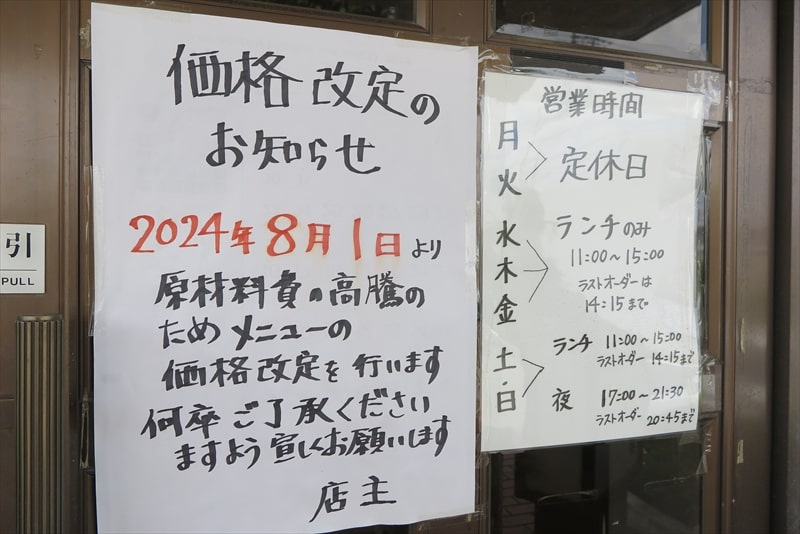 価格改定の
お知らせ
2024年8月1日より
原材料費の高騰の
ためメニューの
価格改定を行います
何卒ご了承ください
ますよう宜しくお願いします
店主
営業時間
月
火
定休日
水
木
金
ランチのみ
11:00~15:00
ラストオーダーは
14:15まで
土・日
ランチ 11:00~15:00
ラストオーダー 14:15まで
夜 17:00~21:30
ラストオーダー 20:45まで
引
PULL